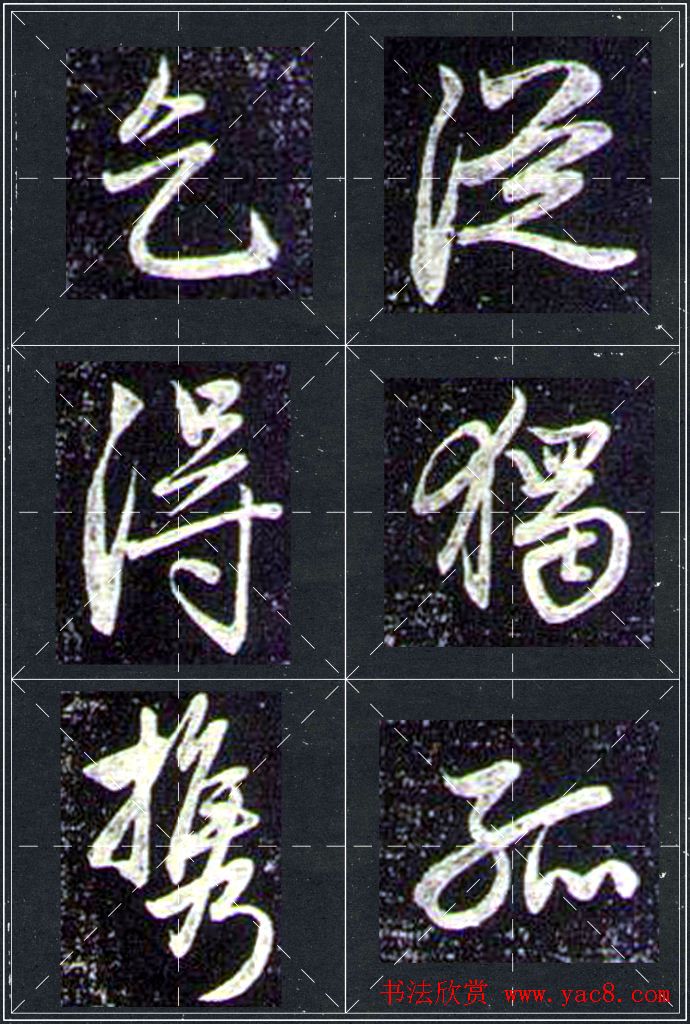 從獨孤
乞得携
书法欣赏 www.yac8.com